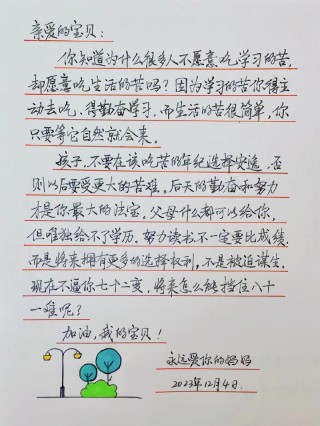 亲爱的宝贝：
你知道为什么很多人不愿意吃学习的苦，
却愿意吃生活的苦吗？因为学习的苦你得主
动去吃，得勤奋学习，而生活的苦很简单，你
只要等它自然就会来。
孩子，不要在该吃苦的年纪选择安逸，否
则以后要受更大的苦难，后天的勤奋和努力
才是你最大的法宝，父母什么都可以给你，
但唯独给不了学历，努力读书不一定要比成绩，
而是将来拥有更多的选择权利，不是被迫谋生，
现在不逼你七十二变，将来怎么能挡住八十
一难呢？
加油，我的宝贝！
永远爱你的妈妈
2023年12月4日.